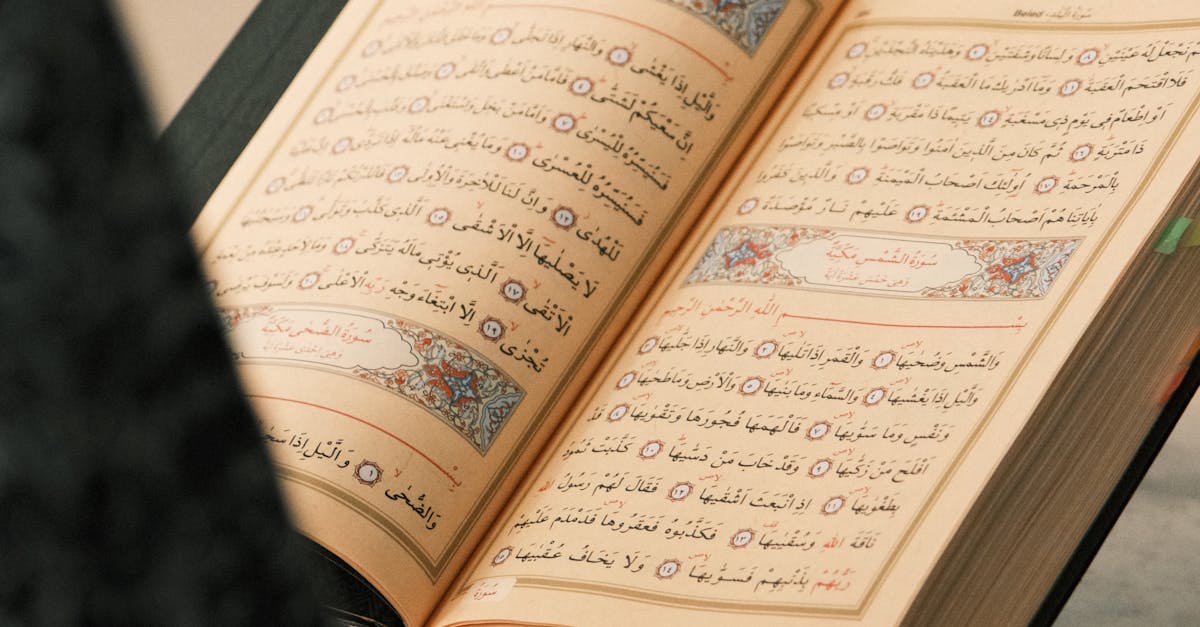 Beled - سُورَةُ الْبَلَدِ
م نَجْعَلْ لَهُ عَيْنَيْنِ ٨ وَلِسَانًا وَشَفَتَيْنِ ٩ وَهَدَيْنَاهُ النَّجْدَيْنِ ١٠
فَلَا اقْتَحَمَ الْعَقَبَةَ ١١ وَمَا اَدْرٰيكَ مَا الْعَقَبَةُ ١٢ فَكُّ رَقَبَةٍ ١٣
اَوْ اِطْعَامٌ فِى يَوْمٍ ذِى مَسْغَبَةٍ ١٤ يَتِيمًا ذَا مَقْرَبَةٍ ١٥ اَوْ مِسْكِينًا
ذَا مَتْرَبَةٍ ١٦ ثُمَّ كَانَ مِنَ الَّذِينَ اٰمَنُوا وَتَوَاصَوْا بِالصَّبْرِ وَتَوَاصَوْا
بِالْمَرْحَمَةِ ١٧ اُولٰئِكَ اَصْحَابُ الْمَيْمَنَةِ ١٨ وَالَّذِينَ كَفَرُوا
بِاٰيَاتِنَا هُمْ اَصْحَابُ الْمَشْئَمَةِ ١٩ عَلَيْهِمْ نَارٌ مُؤْصَدَةٌ ٢٠
سُورَةُ الشَّمْسِ مَكِّيَّةٌ
وَهِىَ خَمْسَ عَشْرَةَ اٰيَةً
بِسْمِ اللّٰهِ الرَّحْمٰنِ الرَّحِيمِ
وَالشَّمْسِ وَضُحٰيهَا ١ وَالْقَمَرِ اِذَا تَلٰيهَا ٢ وَالنَّهَارِ اِذَا جَلّٰيهَا ٣
وَالَّيْلِ اِذَا يَغْشٰيهَا ٤ وَالسَّمَاءِ وَمَا بَنٰيهَا ٥ وَالْاَرْضِ وَمَا طَحٰيهَا ٦
وَنَفْسٍ وَمَا سَوّٰيهَا ٧ فَاَلْهَمَهَا فُجُورَهَا وَتَقْوٰيهَا ٨ قَدْ
اَفْلَحَ مَنْ زَكّٰيهَا ٩ وَقَدْ خَابَ مَنْ دَسّٰيهَا ١٠ كَذَّبَتْ ثَمُودُ
بِطَغْوٰيهَا ١١ اِذِ انْبَعَثَ اَشْقٰيهَا ١٢ فَقَالَ لَهُمْ رَسُولُ اللّٰهِ
نَاقَةَ اللّٰهِ وَسُقْيٰيهَا ١٣ فَكَذَّبُوهُ فَعَقَرُوهَا فَدَمْدَمَ عَلَيْهِمْ
رَبُّهُمْ بِذَنْبِهِمْ فَسَوّٰيهَا ١٤ وَلَا يَخَافُ عُقْبٰيهَا ١٥
سُورَةُ
الرَّحِيمِ
وَالَّيْلِ اِذَا يَغْشٰى ١ وَالنَّهَارِ اِذَا تَجَلّٰى ٢ وَمَا خَلَقَ الذَّكَرَ وَالْاُنْثٰى ٣
اِنَّ سَعْيَكُمْ لَشَتّٰى ٤ فَاَمَّا مَنْ اَعْطٰى وَاتَّقٰى ٥ وَصَدَّقَ بِالْحُسْنٰى ٦
فَسَنُيَسِّرُهُ لِلْيُسْرٰى ٧ وَاَمَّا مَنْ بَخِلَ وَاسْتَغْنٰى ٨ وَكَذَّبَ بِالْحُسْنٰى ٩
فَسَنُيَسِّرُهُ لِلْعُسْرٰى ١٠ وَمَا يُغْنِى عَنْهُ مَالُهُ اِذَا تَرَدّٰى ١١ اِنَّ عَلَيْنَا
لَلْهُدٰى ١٢ وَاِنَّ لَنَا لَلْاٰخِرَةَ وَالْاُولٰى ١٣ فَاَنْذَرْتُكُمْ نَارًا تَلَظّٰى ١٤
لَا يَصْلٰيهَا اِلَّا الْاَشْقٰى ١٥ اَلَّذِى كَذَّبَ وَتَوَلّٰى ١٦ وَسَيُجَنَّبُهَا
الْاَتْقٰى ١٧ اَلَّذِى يُؤْتِى مَالَهُ يَتَزَكّٰى ١٨ وَمَا لِاَحَدٍ عِنْدَهُ مِنْ نِعْمَةٍ
تُجْزٰى ١٩ اِلَّا ابْتِغَاءَ وَجْهِ رَبِّهِ الْاَعْلٰى ٢٠ وَلَسَوْفَ يَرْضٰى
سُورَةُ الضُّحٰى مَكِّيَّةٌ
وَهِىَ اِحْدٰى عَشْرَةَ اٰيَةً
بِسْ
وَالضُّحٰى ١ وَالَّيْلِ اِذَا سَجٰ